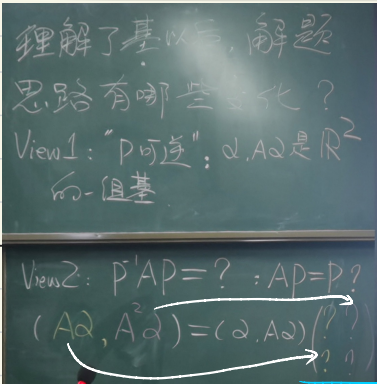 理解了基以后,解题
思路有哪些变化?
View1:"P可逆":α,Aα是ℝ²
的一组基
View2: P⁻¹AP=? :AP=P?
(Aα,A²α)=(α,Aα)(? ?
? ?)